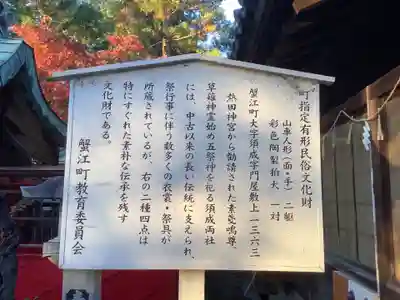 町指定有形民俗文化財
山車人形(面・手) 二躯
彩色陶製狛犬 一対
蟹江町大字須成字門屋敷上一三六三
熱田神宮から勧請された素戔嗚尊、
草薙神霊始め五祭神を祀る須成両社
には、中古以来の長い伝統に支えられ、
祭行事に伴う数多くの衣裳・祭具が
所蔵されているが、右の二種四点は
特にすぐれた素朴な伝承を残す
文化財である。
蟹江町教育委員会